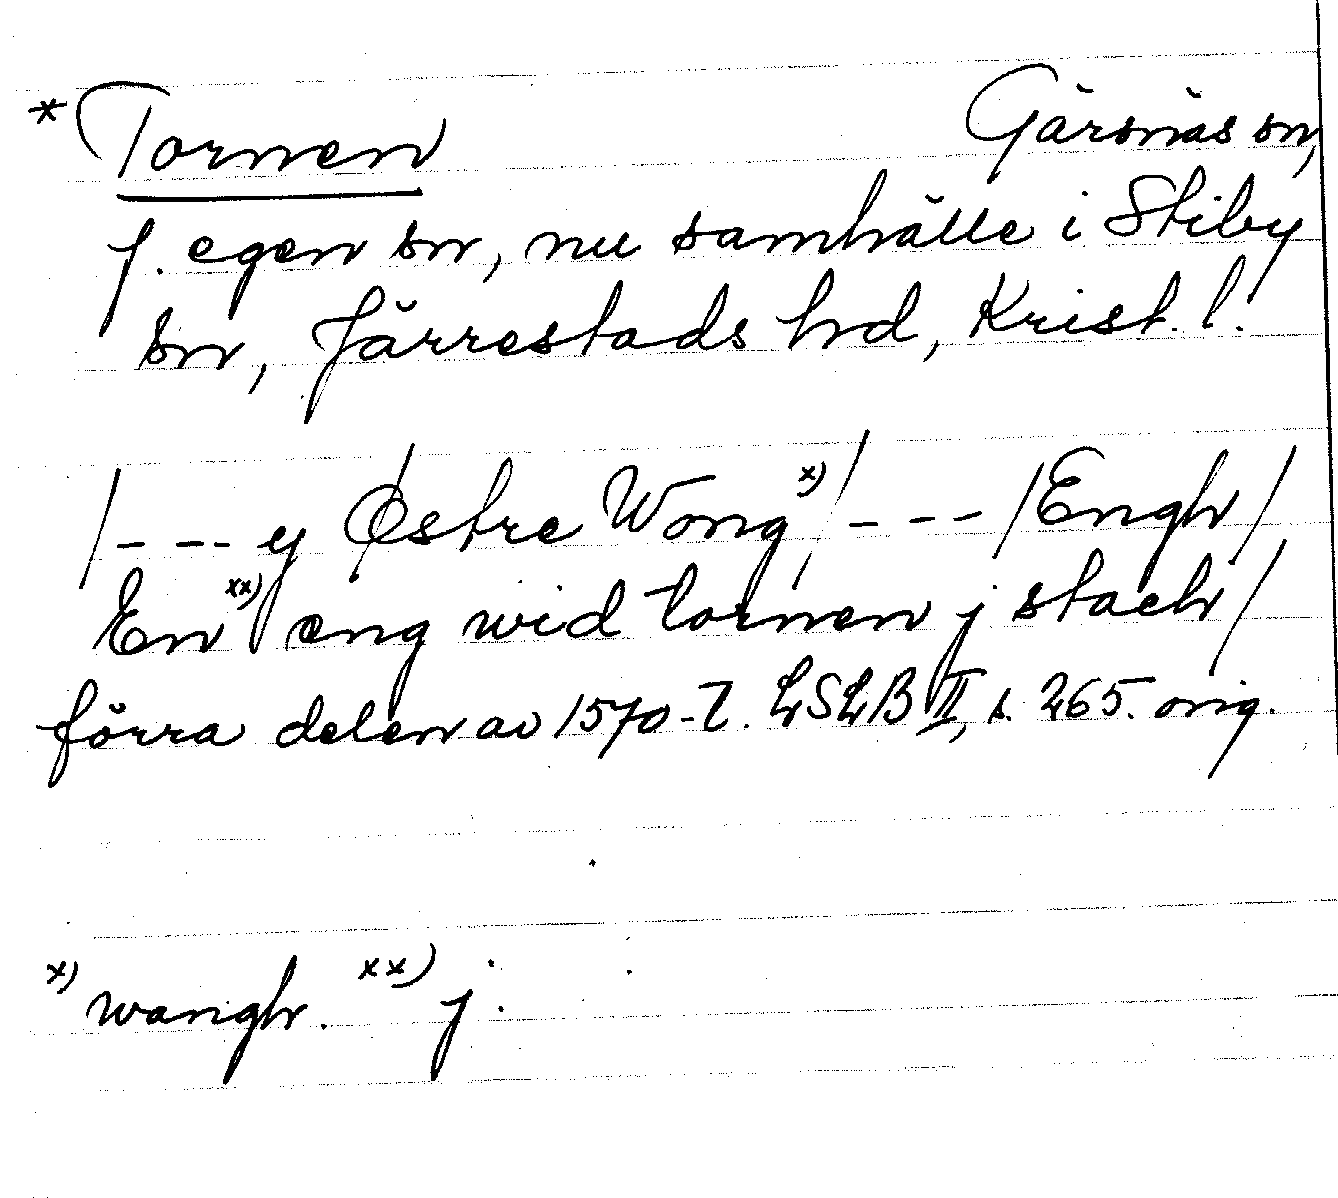 * Tornen Gärsnäs sn,
f. egen sn, nu samhälle i Stiby
sn, Järrestads hd, Krist. l.
/--- ej Østre Wong x) /--- /Engh/
En xx) eng wid tornen j stach/
förra delen av 1570-t. LSLB II, s. 265. orig.
x) wangh. xx) j.